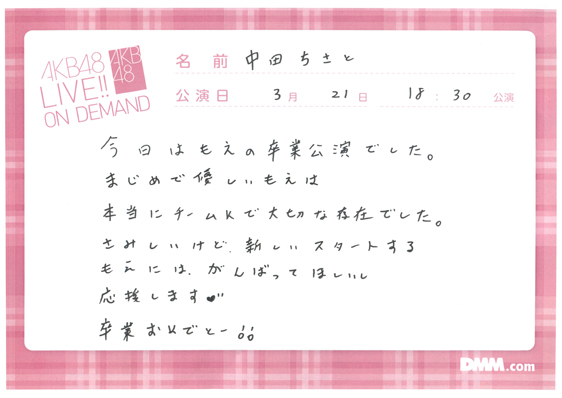 AKB48
LIVE!!
ON DEMAND
AKB
48
名前 中田ちさと
公演日 3月 21日 18:30 公演
今日はもえの卒業公演でした。
まじめで優しいもえは
本当にチームKで大切な存在でした。
さみしいけど、新しいスタートする
もえには、がんばってほしいし
応援します♥
卒業おめでとー!!
DMM.com